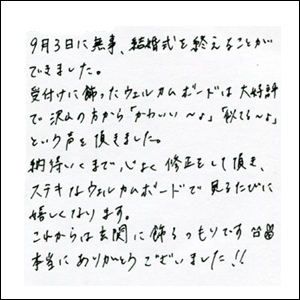 9月3日に無事、結婚式を終えることが
できました。
受付けに飾ったウェルカムボードは大好評
で沢山の方から「かわいい〜よ」「似てる〜よ」
という声を頂きました。
納得いくまで心よく修正をして頂き、
ステキなウェルカムボードで見るたびに
嬉しくなります。
これからは玄関に飾るつもりです
本当にありがとうございました!!